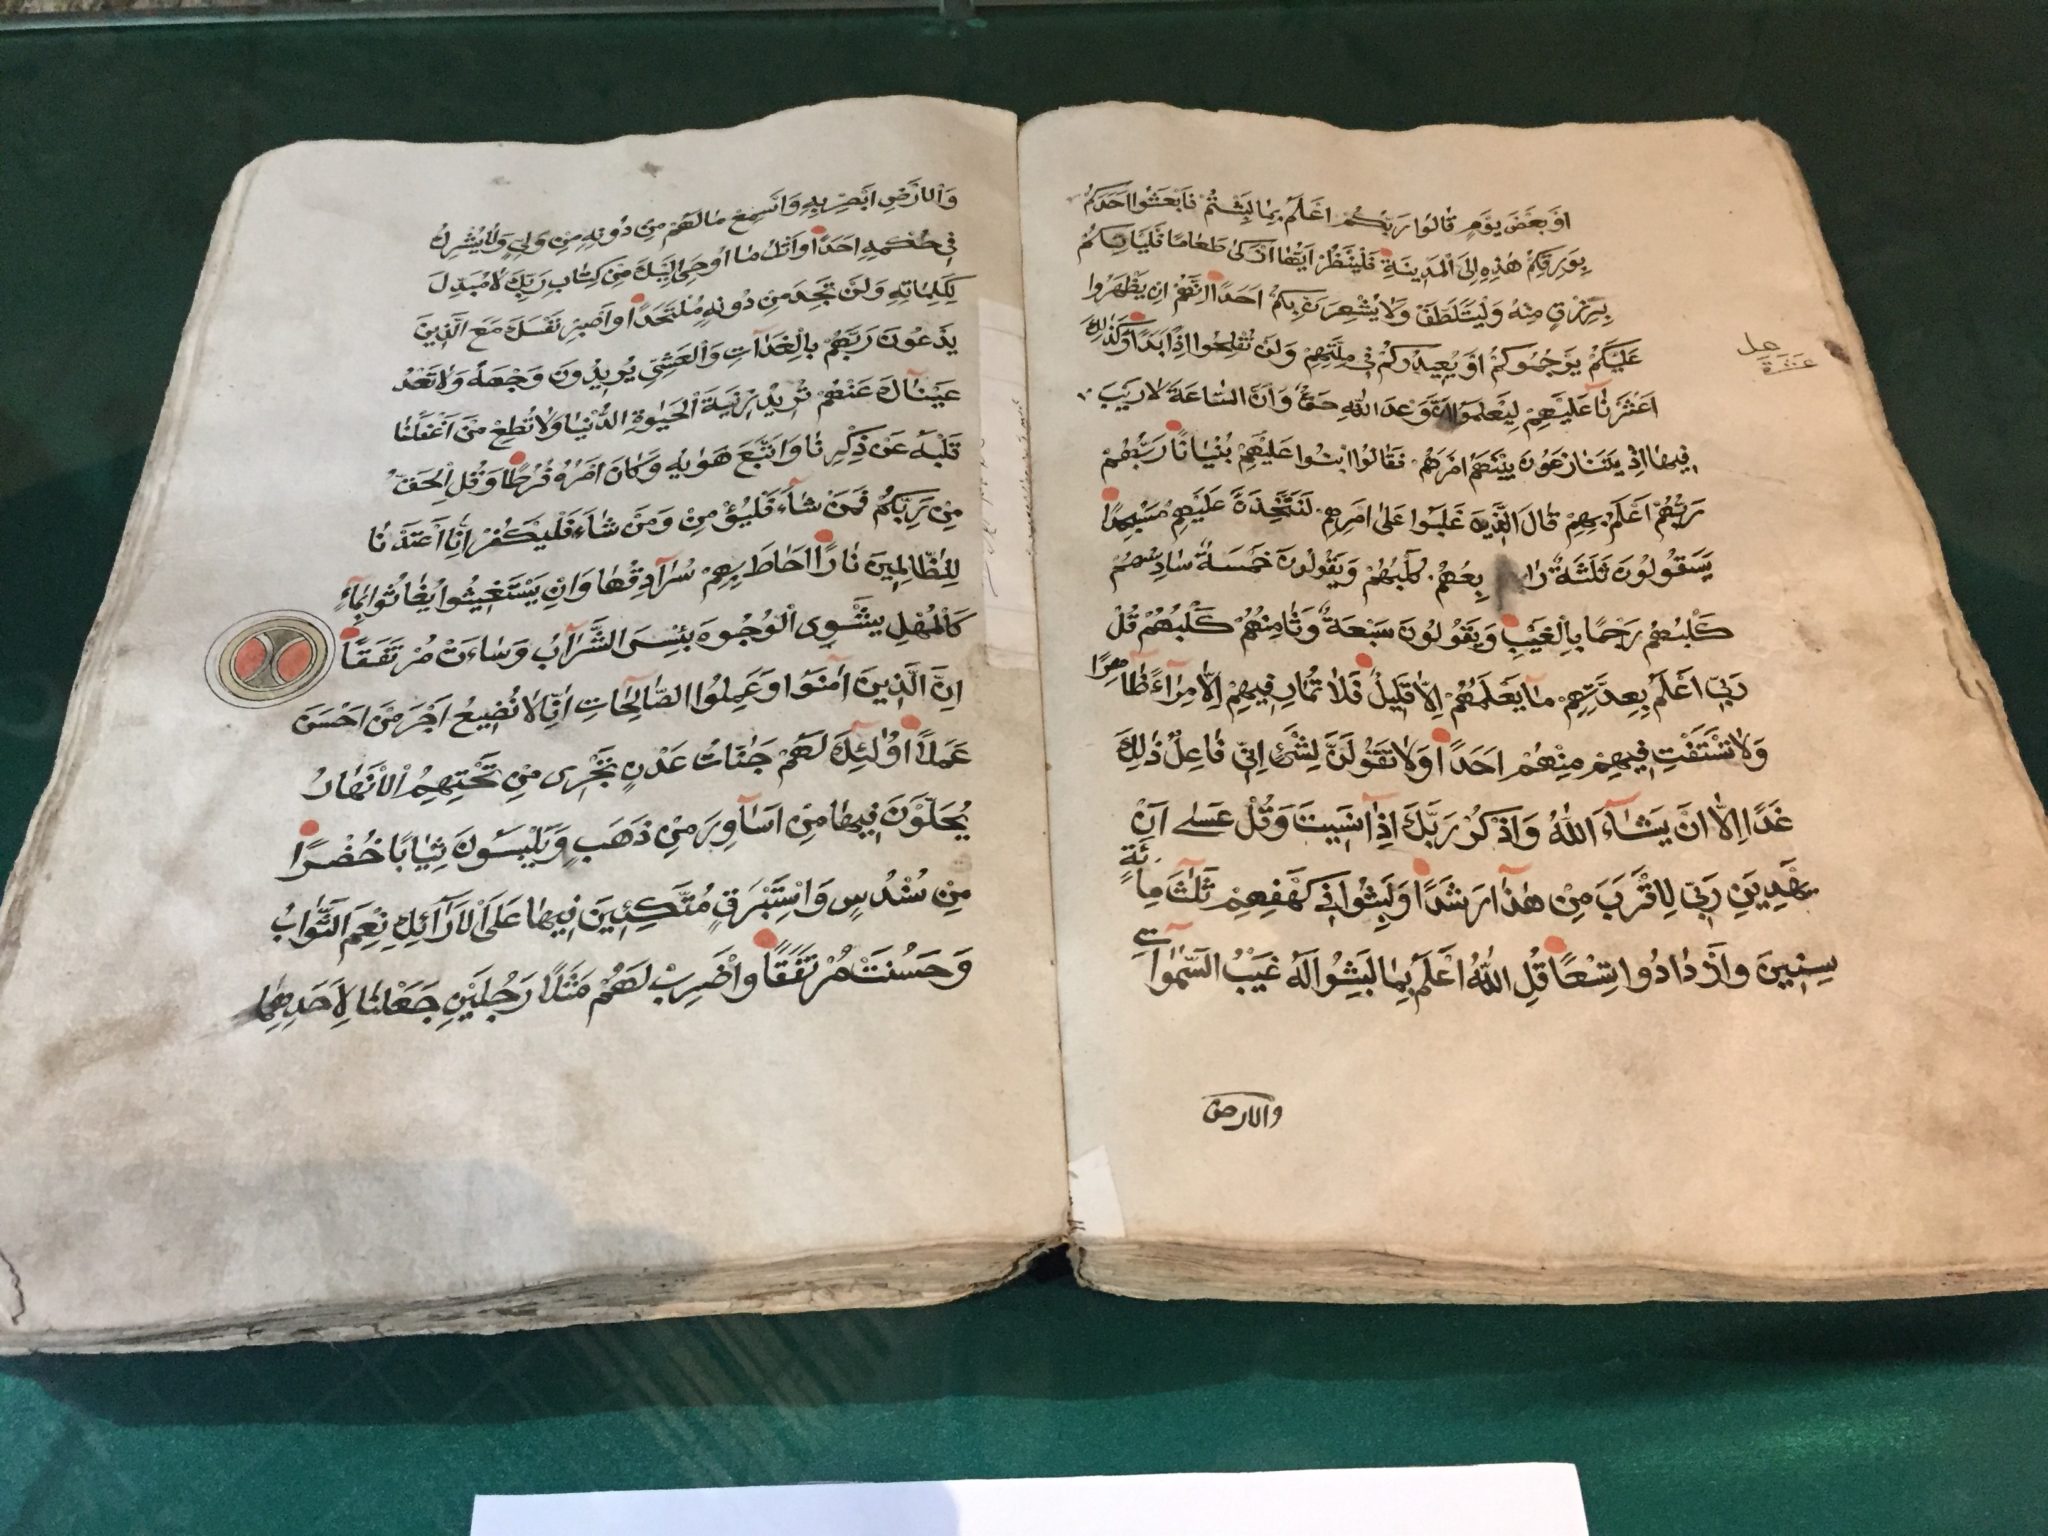 اَوْ بَعْضَ يَوْمٍ قَالُوا رَبُّكُمْ اَعْلَمُ بِمَا لَبِثْتُمْ فَابْعَثُوا اَحَدَكُمْ
بِوَرِقِكُمْ هٰذِهِ اِلَى الْمَدِينَةِ فَلْيَنْظُرْ اَيُّهَا اَزْكٰى طَعَامًا فَلْيَأْتِكُمْ
بِرِزْقٍ مِنْهُ وَلْيَتَلَطَّفْ وَلَا يُشْعِرَنَّ بِكُمْ اَحَدًا اِنَّهُمْ اِنْ يَظْهَرُوا
عَلَيْكُمْ يَرْجُمُوكُمْ اَوْ يُعِيدُوكُمْ فِي مِلَّتِهِمْ وَلَنْ تُفْلِحُوا اِذًا اَبَدًا وَكَذٰلِكَ
اَعْثَرْنَا عَلَيْهِمْ لِيَعْلَمُوا اَنَّ وَعْدَ اللّٰهِ حَقٌّ وَاَنَّ السَّاعَةَ لَا رَيْبَ
فِيهَا اِذْ يَتَنَازَعُونَ بَيْنَهُمْ اَمْرَهُمْ فَقَالُوا ابْنُوا عَلَيْهِمْ بُنْيَانًا رَبُّهُمْ
رَبُّهُمْ اَعْلَمُ بِهِمْ قَالَ الَّذِينَ غَلَبُوا عَلٰى اَمْرِهِمْ لَنَتَّخِذَنَّ عَلَيْهِمْ مَسْجِدًا
سَيَقُولُونَ ثَلٰثَةٌ رَابِعُهُمْ كَلْبُهُمْ وَيَقُولُونَ خَمْسَةٌ سَادِسُهُمْ
كَلْبُهُمْ رَجْمًا بِالْغَيْبِ وَيَقُولُونَ سَبْعَةٌ وَثَامِنُهُمْ كَلْبُهُمْ قُلْ
رَبِّي اَعْلَمُ بِعِدَّتِهِمْ مَا يَعْلَمُهُمْ اِلَّا قَلِيلٌ فَلَا تُمَارِ فِيهِمْ اِلَّا مِرَاءً ظَاهِرًا
وَلَا تَسْتَفْتِ فِيهِمْ مِنْهُمْ اَحَدًا وَلَا تَقُولَنَّ لِشَيْءٍ اِنِّي فَاعِلٌ ذٰلِكَ
غَدًا اِلَّا اَنْ يَشَآءَ اللّٰهُ وَاذْكُرْ رَبَّكَ اِذَا نَسِيتَ وَقُلْ عَسٰى اَنْ
يَهْدِيَنِ رَبِّي لِاَقْرَبَ مِنْ هٰذَا رَشَدًا وَلَبِثُوا فِي كَهْفِهِمْ ثَلٰثَ مِائَةٍ
سِنِينَ وَازْدَادُوا تِسْعًا قُلِ اللّٰهُ اَعْلَمُ بِمَا لَبِثُوا لَهُ غَيْبُ السَّمٰوَاتِ
والارض
وَالْاَرْضِ اَبْصِرْ بِهِ وَاَسْمِعْ مَا لَهُمْ مِنْ دُونِهِ مِنْ وَلِيٍّ وَلَا يُشْرِكُ
فِي حُكْمِهِ اَحَدًا وَاتْلُ مَا اُوحِيَ اِلَيْكَ مِنْ كِتَابِ رَبِّكَ لَا مُبَدِّلَ
لِكَلِمَاتِهِ وَلَنْ تَجِدَ مِنْ دُونِهِ مُلْتَحَدًا وَاصْبِرْ نَفْسَكَ مَعَ الَّذِينَ
يَدْعُونَ رَبَّهُمْ بِالْغَدَاةِ وَالْعَشِيِّ يُرِيدُونَ وَجْهَهُ وَلَا تَعْدُ
عَيْنَاكَ عَنْهُمْ تُرِيدُ زِينَةَ الْحَيٰوةِ الدُّنْيَا وَلَا تُطِعْ مَنْ اَغْفَلْنَا
قَلْبَهُ عَنْ ذِكْرِنَا وَاتَّبَعَ هَوٰيهُ وَكَانَ اَمْرُهُ فُرُطًا وَقُلِ الْحَقُّ
مِنْ رَبِّكُمْ فَمَنْ شَآءَ فَلْيُؤْمِنْ وَمَنْ شَآءَ فَلْيَكْفُرْ اِنَّا اَعْتَدْنَا
لِلظَّالِمِينَ نَارًا اَحَاطَ بِهِمْ سُرَادِقُهَا وَاِنْ يَسْتَغِيثُوا يُغَاثُوا بِمَآءٍ
كَالْمُهْلِ يَشْوِي الْوُجُوهَ بِئْسَ الشَّرَابُ وَسَاءَتْ مُرْتَفَقًا
اِنَّ الَّذِينَ اٰمَنُوا وَعَمِلُوا الصَّالِحَاتِ اِنَّا لَا نُضِيعُ اَجْرَ مَنْ اَحْسَنَ
عَمَلًا اُولٰئِكَ لَهُمْ جَنَّاتُ عَدْنٍ تَجْرِي مِنْ تَحْتِهِمُ الْاَنْهَارُ
يُحَلَّوْنَ فِيهَا مِنْ اَسَاوِرَ مِنْ ذَهَبٍ وَيَلْبَسُونَ ثِيَابًا خُضْرًا
مِنْ سُنْدُسٍ وَاِسْتَبْرَقٍ مُتَّكِئِينَ فِيهَا عَلَى الْاَرَآئِكِ نِعْمَ الثَّوَابُ
وَحَسُنَتْ مُرْتَفَقًا وَاضْرِبْ لَهُمْ مَثَلًا رَجُلَيْنِ جَعَلْنَا لِاَحَدِهِمَا